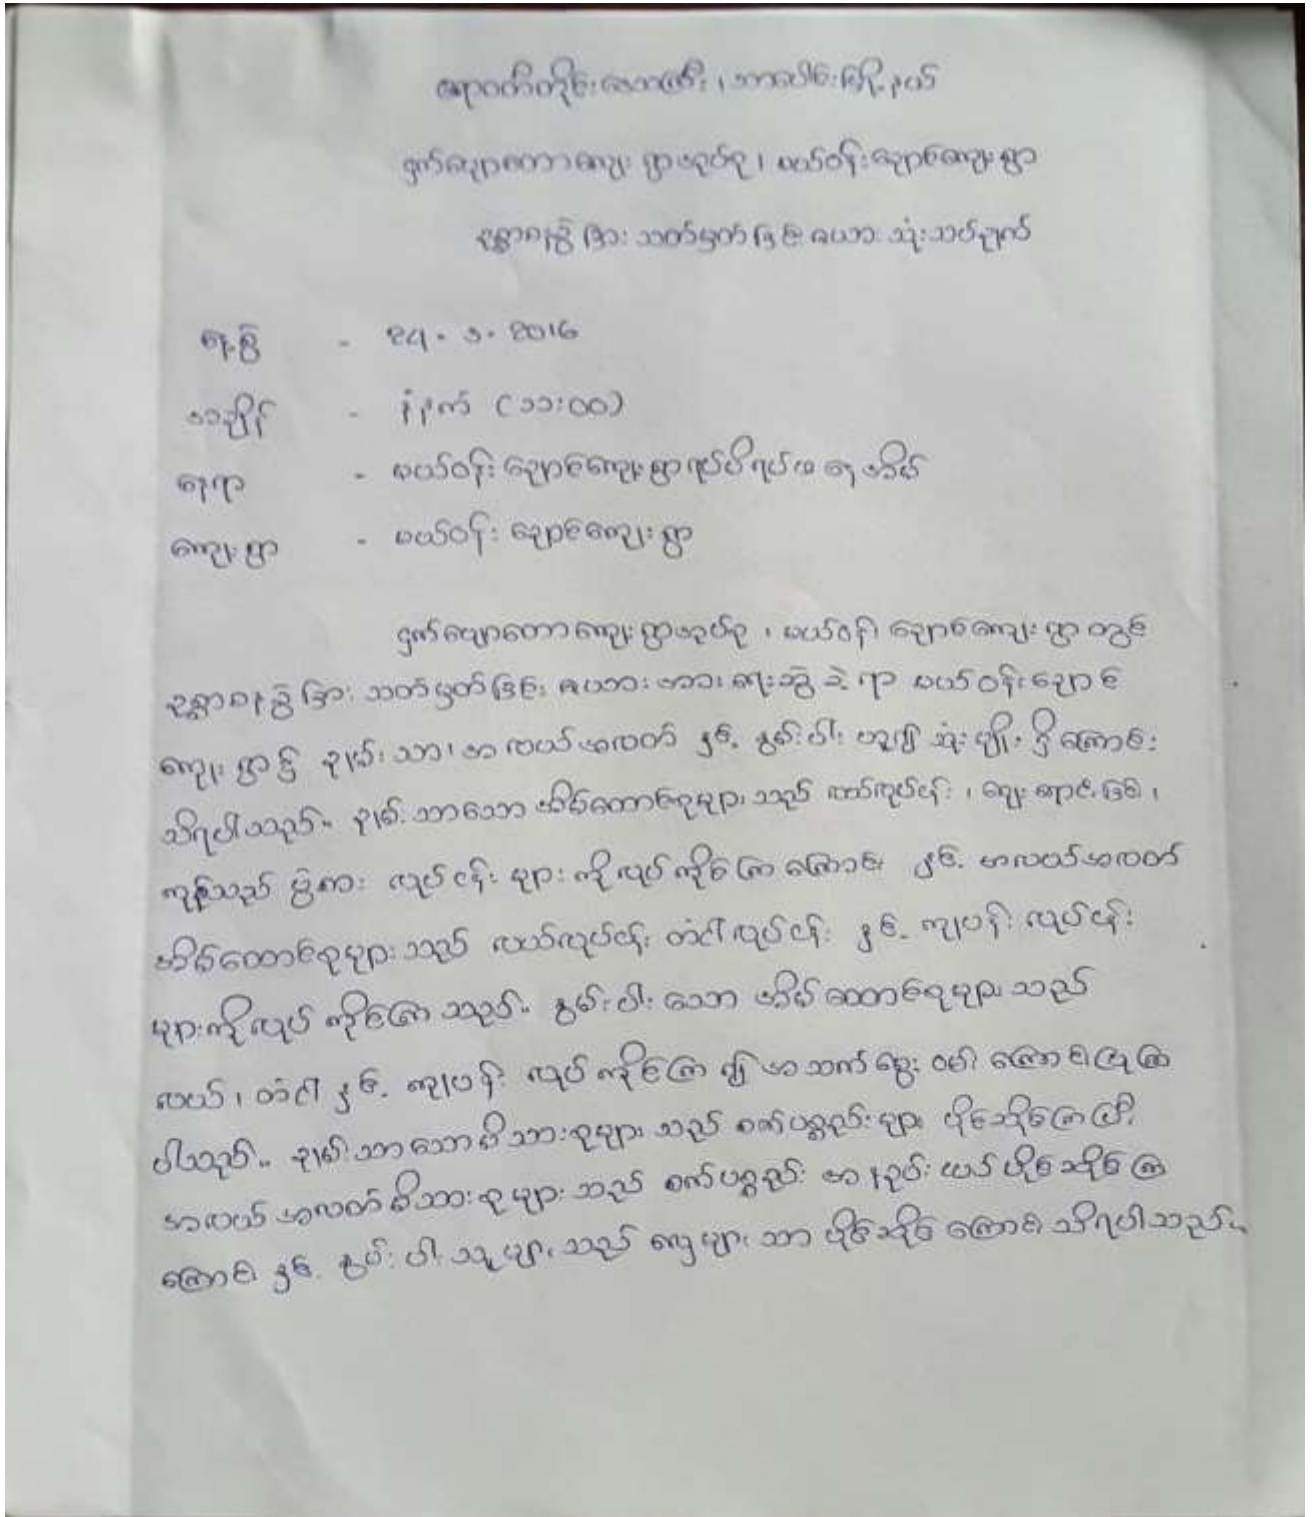 ဧရာဝတီတိုင်းဒေသကြီး၊ ဘားပေါင်းမြို့နယ်
ငှက်ပျောတောကျေးရွာအုပ်စု၊ မယ်ဝန်းချောင်ကျေးရွာ
ဥစ္စာဓနခွဲခြားသတ်မှတ်ခြင်းဇယား သုံးသပ်ချက်
နေ့စွဲ - ၉.၂၀၁၆
အချိန် - နံနက် (၁၁:၀၀)
နေရာ - မယ်ဝန်းချောင်ကျေးရွာရပ်မိရပ်ဖနေအိမ်
ကျေးရွာ - မယ်ဝန်းချောင်ကျေးရွာ
ငှက်ပျောတောကျေးရွာအုပ်စု၊ မယ်ဝန်းချောင်ကျေးရွာတွင်
ဥစ္စာဓနခွဲခြားသတ်မှတ်ခြင်းဇယားအားရေးဆွဲခဲ့ရာ မယ်ဝန်းချောင်
ကျေးရွာ၌ ချမ်းသာ၊ အလယ်အလတ် နှင့် နွမ်းပါး ဟူ၍ သုံးမျိုးရှိကြောင်း
သိရပါသည်။ ချမ်းသာသောအိမ်ထောင်စုများသည် လယ်လုပ်ငန်း၊ ဈေးရောင်းခြင်း၊
ကုန်သည် ပွဲစား လုပ်ငန်းများကိုလုပ်ကိုင်ကြကြောင်း နှင့် အလယ်အလတ်
အိမ်ထောင်စုများသည် လယ်လုပ်ငန်း တံငါလုပ်ငန်း နှင့် ကျပန်းလုပ်ငန်း
များကိုလုပ်ကိုင်ကြသည်။ နွမ်းပါးသော အိမ်ထောင်စုများသည်
လယ်၊ တံငါ နှင့် ကျပန်း လုပ်ကိုင်ကြ၍ အသက်မွေးဝမ်းကြောင်းပြုကြ
ပါသည်။ ချမ်းသာသောမိသားစုများသည် စက်ပစ္စည်းများ ပိုင်ဆိုင်ကြပြီး
အလယ်အလတ်မိသားစုများသည် စက်ပစ္စည်း အနည်းငယ်ပိုင်ဆိုင်ကြ
ကြောင်း နှင့် နွမ်းပါးသူများသည် လှေများသာ ပိုင်ဆိုင်ကြောင်းသိရပါသည်။